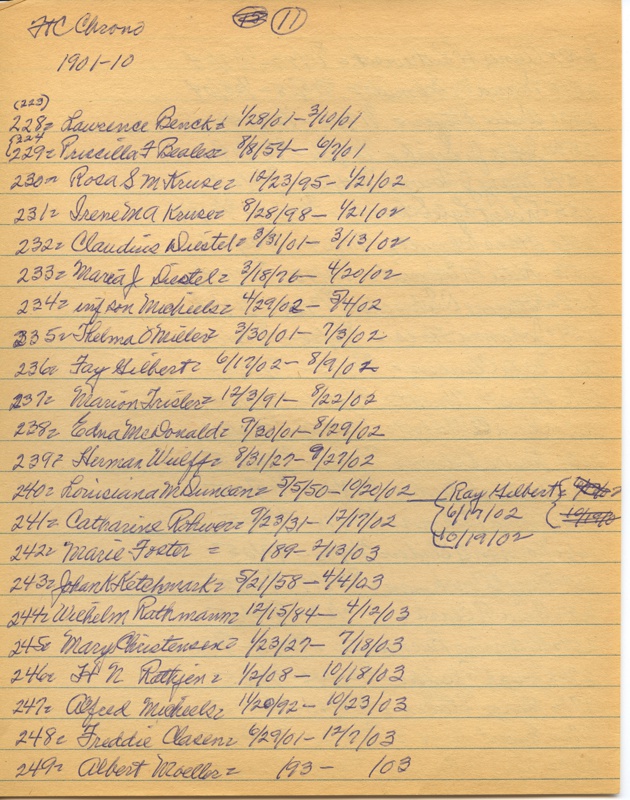 HC Chrono 11
1901-10
(223)
228= Lawrence Benck = 1/28/01- 3/10/01
229= Priscilla F Beales= 8/8/54- 6/7/01
230= Rosa S M Kruse= 12/23/95- 4/21/02
231= Irene M A Kruse= 8/28/98- 4/21/02
232= Claudius Diestel= 3/31/01- 3/13/02
233= Maria J Diestel= 3/18/76- 4/20/02
234= inf son Michels= 4/29/02- 5/4/02
235= Thelma O Mieler= 3/30/01- 7/3/02
236= Fay Gilbert= 6/17/02- 8/9/02
237= Marion Trisler= 12/3/91- 8/22/02
238= Edna McDonald= 9/30/01- 8/29/02
239= Herman Wulff= 8/31/27- 9/27/02
240= Louisiana M Duncan= 5/5/50-10/20/02 (Ray Gilbert=
241= Catharine Rohwer= 9/23/31- 12/17/02 6/17/02
242= Marie Foster = 189- 2/13/03 10/19/02
243= Johan K Ketchmark= 5/21/58-4/4/03
244= Wilhelm Rathmann= 12/15/84- 4/12/03
245= Mary Christensen= 1/23/27- 7/18/03
246= H N Rattjen= 1/2/08- 10/18/03
247= Alfred Michels= 11/20/92- 10/23/03
248= Freddie Clasen= 6/29/01- 12/7/03
249= Albert Moeller= /93- /03